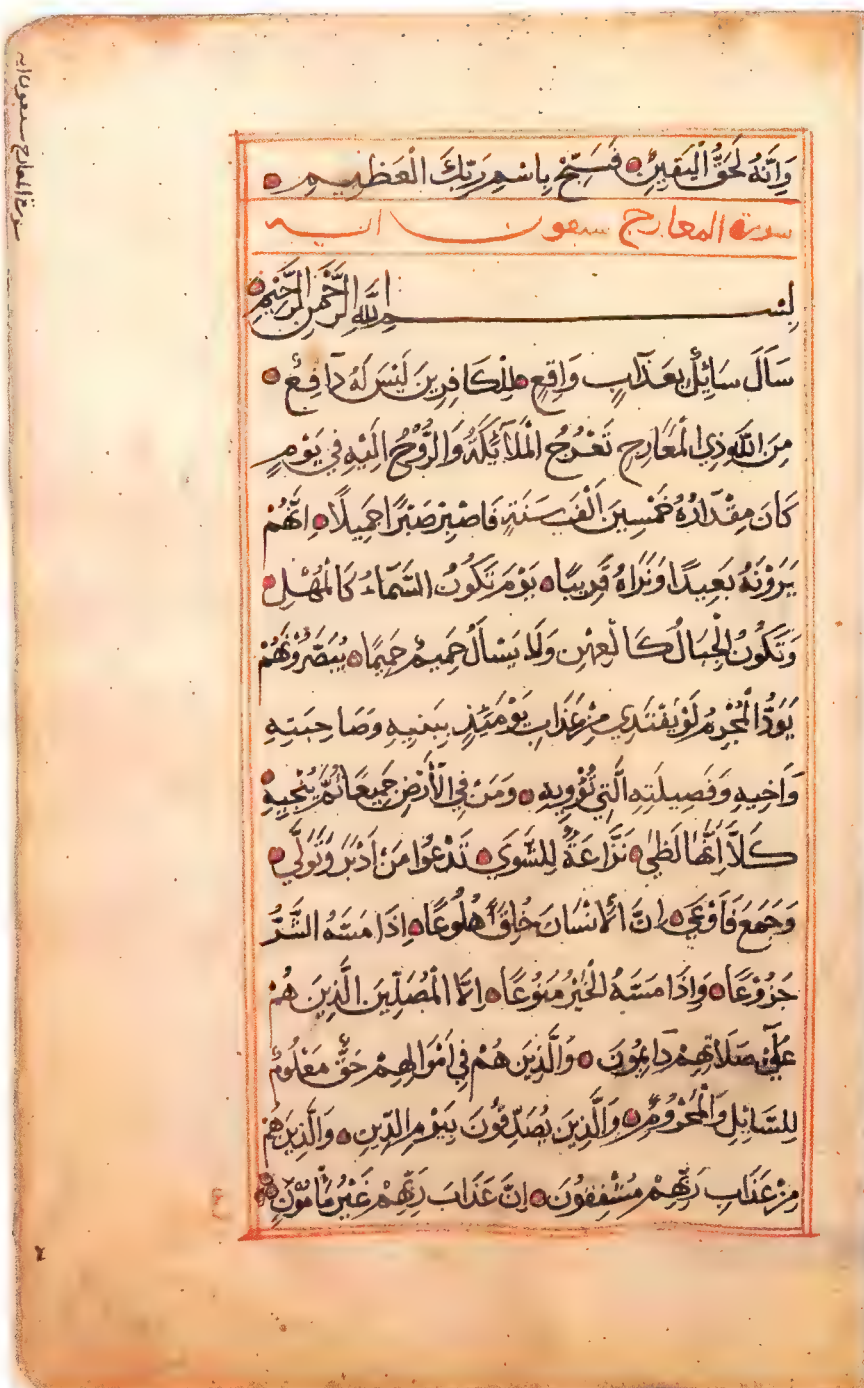 وَاِنَّهُ لَحَقُّ الْيَقِيْنِ فَسَبِّحْ بِاسْمِ رَبِّكَ الْعَظِيْمِ
سورة المعارج سبعون اية
بِسْمِ اللّٰهِ الرَّحْمٰنِ الرَّحِيْمِ
سَاَلَ سَائِلٌ بِعَذَابٍ وَاقِعٍ لِلْكَافِرِينَ لَيْسَ لَهُ دَافِعٌ
مِنَ اللّٰهِ ذِي الْمَعَارِجِ تَعْرُجُ الْمَلَآئِكَةُ وَالرُّوْحُ اِلَيْهِ فِي يَوْمٍ
كَانَ مِقْدَارُهُ خَمْسِينَ اَلْفَ سَنَةٍ فَاصْبِرْ صَبْرًا جَمِيلًا اِنَّهُمْ
يَرَوْنَهُ بَعِيدًا وَنَرَاهُ قَرِيبًا يَوْمَ تَكُونُ السَّمَآءُ كَالْمُهْلِ
وَتَكُونُ الْجِبَالُ كَالْعِهْنِ وَلَا يَسْاَلُ حَمِيمٌ حَمِيمًا يُبَصَّرُوْنَهُمْ
يَوَدُّ الْمُجْرِمُ لَوْ يَفْتَدِي مِنْ عَذَابِ يَوْمَئِذٍ بِبَنِيهِ وَصَاحِبَتِهِ
وَاَخِيهِ وَفَصِيلَتِهِ الَّتِي تُؤْوِيهِ وَمَنْ فِي الْاَرْضِ جَمِيعًا ثُمَّ يُنْجِيهِ
كَلَّا اِنَّهَا لَظٰى نَزَّاعَةً لِلشَّوَى تَدْعُوا مَنْ اَدْبَرَ وَتَوَلَّى
وَجَمَعَ فَاَوْعَى اِنَّ الْاِنْسَانَ خُلِقَ هَلُوعًا اِذَا مَسَّهُ الشَّرُّ
جَزُوْعًا وَاِذَا مَسَّهُ الْخَيْرُ مَنُوعًا اِلَّا الْمُصَلِّينَ الَّذِينَ هُمْ
عَلَى صَلَاتِهِمْ دَائِمُونَ وَالَّذِينَ هُمْ فِي اَمْوَالِهِمْ حَقٌّ مَعْلُومٌ
لِلسَّائِلِ وَالْمَحْرُومِ وَالَّذِينَ يُصَدِّقُونَ بِيَوْمِ الدِّينِ وَالَّذِينَ هُمْ
مِنْ عَذَابِ رَبِّهِمْ مُشْفِقُونَ اِنَّ عَذَابَ رَبِّهِمْ غَيْرُ مَأْمُوْنٍ
سورة المعارج سبعون ايه